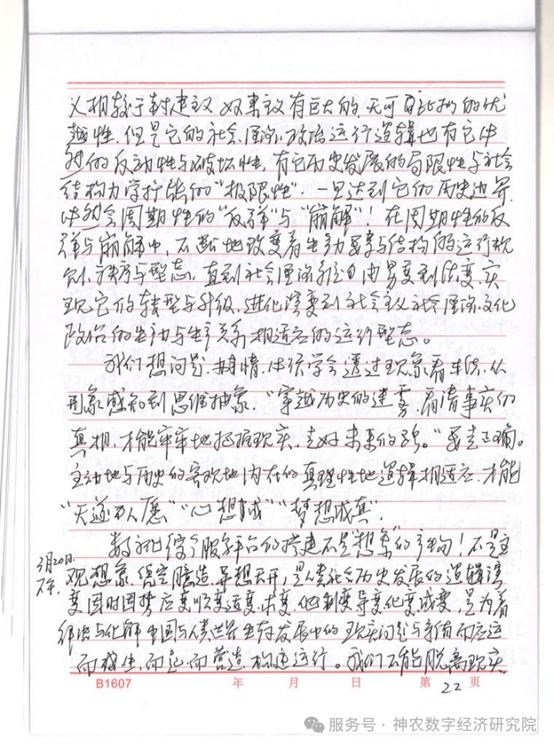 义相较于封建主义 奴隶主义有巨大的、无可比拟的优
越性，但是它的社会、经济、政治运行逻辑也有它必
然的反动性与破坏性，有它历史发展的局限性与社会
结构力学 的"极限性"，一旦达到它的历史边界
必然会周期性的"反弹"与"崩解"！在周期性的反
弹与崩解中，不断地改变着生产力要素与结构的运行机
制、秩序与型态，直到社会经济 由量变到质变，实
现它的转型与升级，进化演变到社会主义社会经济文化
政治的生产力与生产关系相适应的运行型态。
我们想问题、办事情，必须学会透过现象看本质，从
具象感知到思维抽象，"穿越历史的迷雾，看清事实的
真相，才能牢牢地把握现实，走好未来的路。"要正确、
主动地与历史的客观地内在的真理性地选择相适应，才能
"天遂人愿""心想事成""梦想成真"。
数字化综合服务平台的搭建不是"想象"的产物！不是主
3月20日
观想象、凭空臆造、异想天开，是人类社会历史发展的逻辑演
变因时因势应变 适变、求变，
解决与化解中国与人类世界生存发展中的现实问题与矛盾而应运
而生，而起而营造构建运行。我们不能脱离现实，
B1607 年 月 日 第 22 页
服务号·神农数字经济研究院